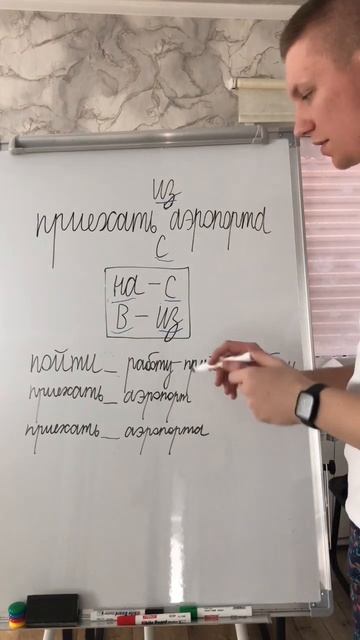 из
приехать аэропорта
с
на - с
в - из
пойти _ работу -
приехать _ аэропорт
приехать _ аэропорта